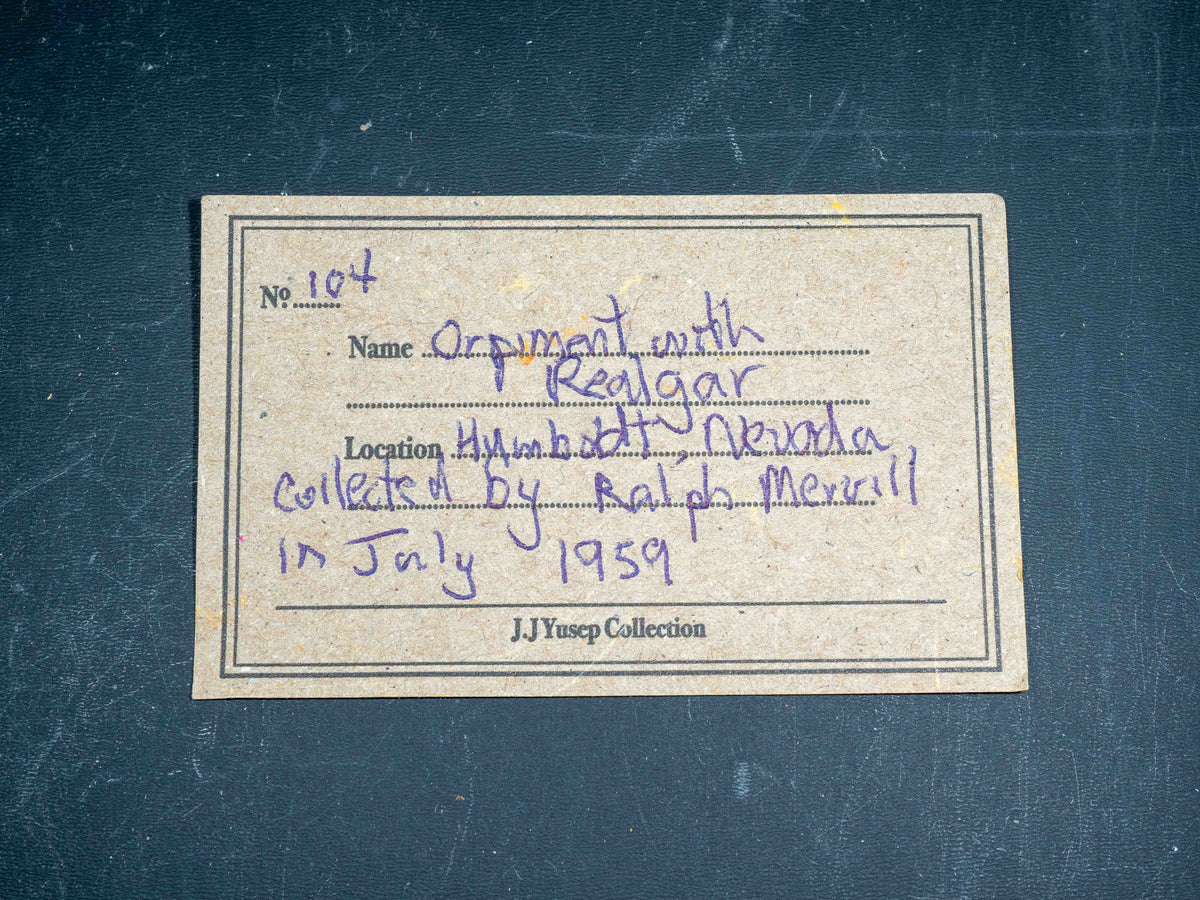 No 104
Name Orpiment with
Realgar
Location Humboldt, Nevada
Collected by Ralph Merrill
in July 1959
J.J Yusep Collection